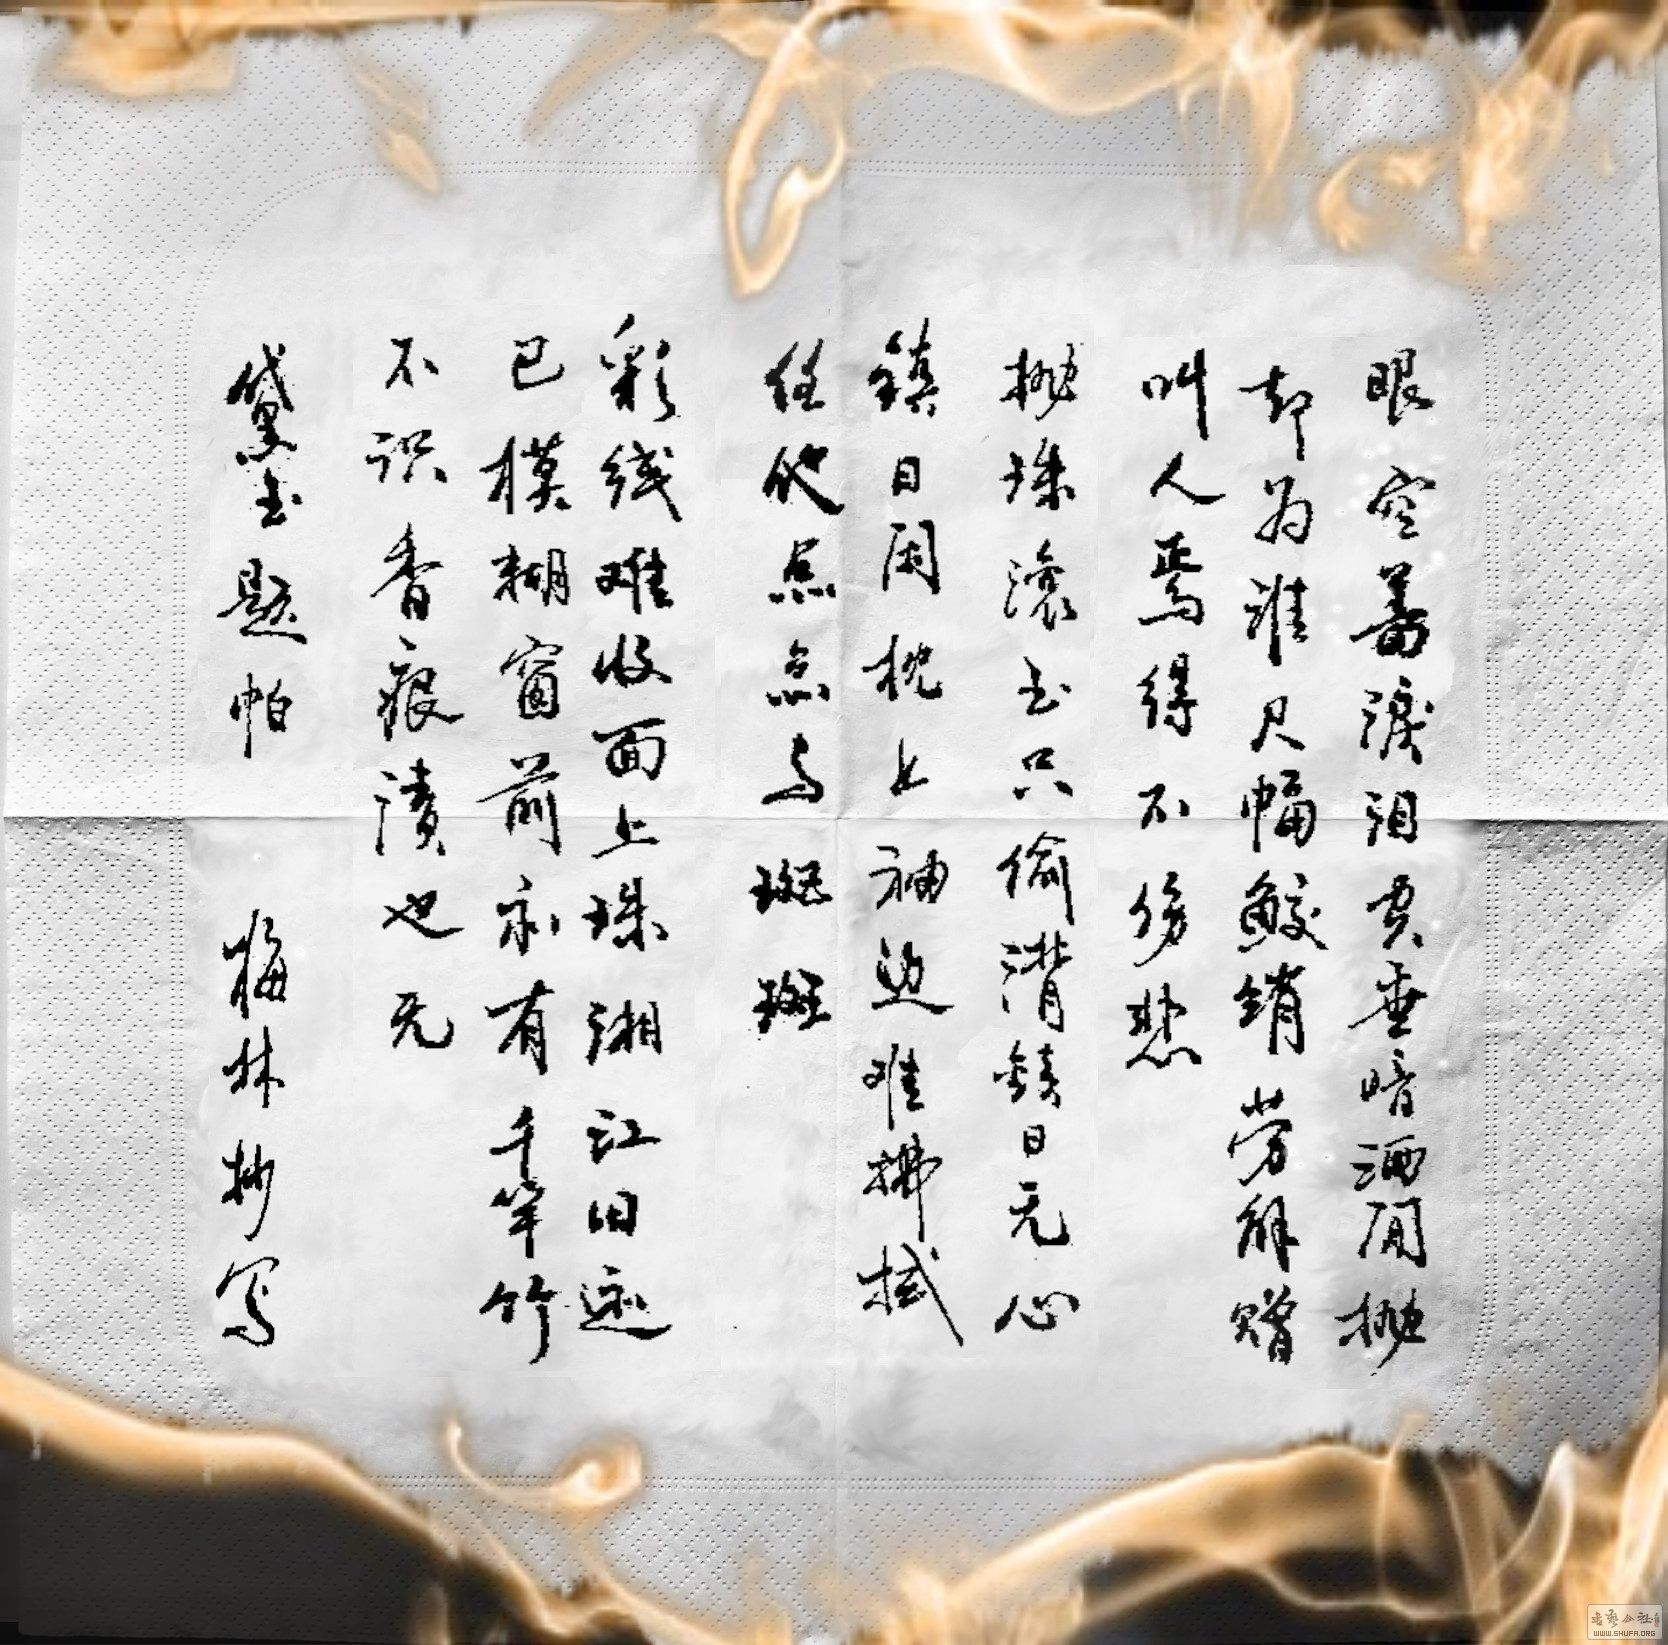 眼空蓄淚泪空垂暗洒闲抛
却为谁尺幅鲛绡劳解赠
叫人焉得不伤悲
抛珠滚玉只偷潸镇日无心
镇日闲枕上袖边难拂拭
任他点点与斑斑
彩线难收面上珠湘江旧迹
已模糊窗前亦有千竿竹
不识香痕渍也无
黛玉题帕 梅林抄写
书艺公社
WWW.SHUFA.ORG